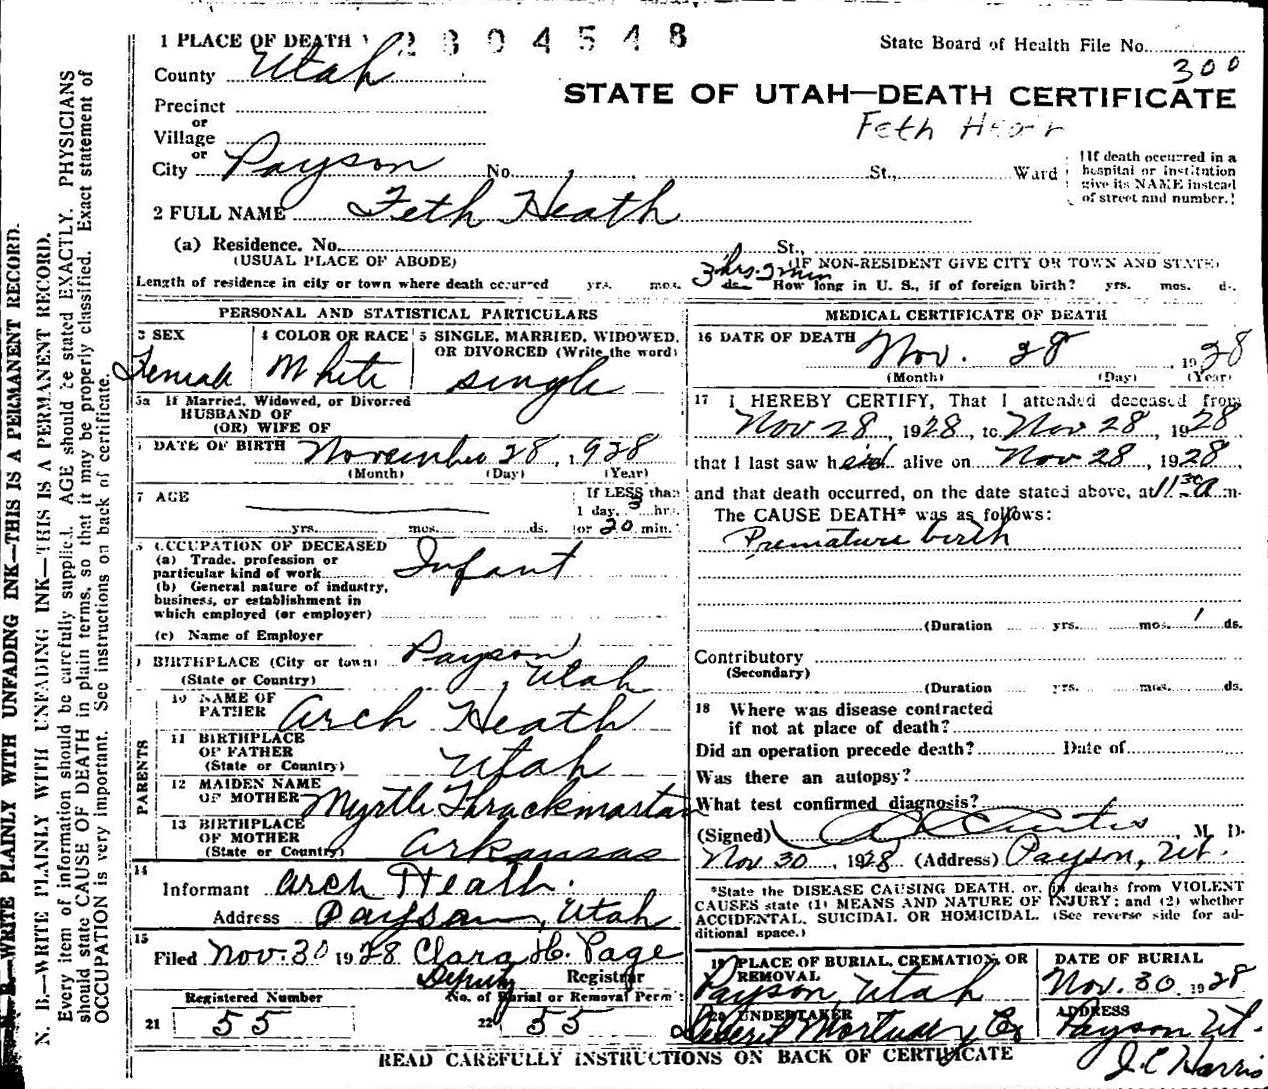 1 PLACE OF DEATH 2 3 0 4 5 4 8
State Board of Health File No.
County Utah
300
STATE OF UTAH—DEATH CERTIFICATE
Precinct
or
Village
or
City Payson No. St., Ward
Feth Heath
(If death occurred in a
hospital or institution
give its NAME instead
of street and number.)
2 FULL NAME Feth Heath
(a) Residence. No. St.,
(USUAL PLACE OF ABODE) (IF NON-RESIDENT GIVE CITY OR TOWN AND STATE)
3 hrs. 2 min
Length of residence in city or town where death occurred yrs. mos. ds. How long in U. S., if of foreign birth? yrs. mos. ds.
PERSONAL AND STATISTICAL PARTICULARS
3 SEX 4 COLOR OR RACE 5 SINGLE, MARRIED, WIDOWED,
OR DIVORCED (Write the word)
Female White single
5a If Married, Widowed, or Divorced
HUSBAND OF
(OR) WIFE OF
6 DATE OF BIRTH November 28, 1928
(Month) (Day) (Year)
7 AGE If LESS than
1 day, 3 hrs.
yrs. mos. ds. or 20 min.
8 OCCUPATION OF DECEASED
(a) Trade, profession or
particular kind of work Infant
(b) General nature of industry,
business, or establishment in
which employed (or employer)
(c) Name of Employer
9 BIRTHPLACE (City or town) Payson
(State or Country) Utah
PARENTS
10 NAME OF
FATHER Arch Heath
11 BIRTHPLACE
OF FATHER
(State or Country) Utah
12 MAIDEN NAME
OF MOTHER Myrtle Thrackmartan
13 BIRTHPLACE
OF MOTHER
(State or Country) Arkansas
14
Informant Arch Heath.
Address Payson, Utah
15
Filed Nov. 30 1928 Clara H. Page
Deputy Registrar
Registered Number No. of Burial or Removal Permit
21 55 22 55
MEDICAL CERTIFICATE OF DEATH
16 DATE OF DEATH Nov. 28, 1928
(Month) (Day) (Year)
17 I HEREBY CERTIFY, That I attended deceased from
Nov 28, 1928, to Nov 28, 1928
that I last saw her alive on Nov 28, 1928,
and that death occurred, on the date stated above, at 11 30 a m.
The CAUSE DEATH* was as follows:
Premature birth
(Duration yrs. mos. 1 ds.
Contributory
(Secondary)
(Duration yrs. mos. ds.
18 Where was disease contracted
if not at place of death?
Did an operation precede death? Date of
Was there an autopsy?
What test confirmed diagnosis?
(Signed) Curtis, M. D.
Nov. 30, 1928 (Address) Payson, Ut.
*State the DISEASE CAUSING DEATH, or, in deaths from VIOLENT
CAUSES state (1) MEANS AND NATURE OF INJURY; and (2) whether
ACCIDENTAL, SUICIDAL OR HOMICIDAL. (See reverse side for ad-
ditional space.)
19 PLACE OF BURIAL, CREMATION, OR
REMOVAL
Payson, Utah
DATE OF BURIAL
Nov. 30 1928
20 UNDERTAKER
Deseret Mortuary Co
ADDRESS
Payson Ut.
J. C Harris
READ CAREFULLY INSTRUCTIONS ON BACK OF CERTIFICATE
N. B.—WRITE PLAINLY WITH UNFADING INK—THIS IS A PERMANENT RECORD.
N. B.—WRITE PLAINLY WITH UNFADING INK—THIS IS A PERMANENT RECORD.
Every item of information should be carefully supplied. AGE should be stated EXACTLY. PHYSICIANS
should state CAUSE OF DEATH in plain terms, so that it may be properly classified. Exact statement of
OCCUPATION is very important. See instructions on back of certificate.